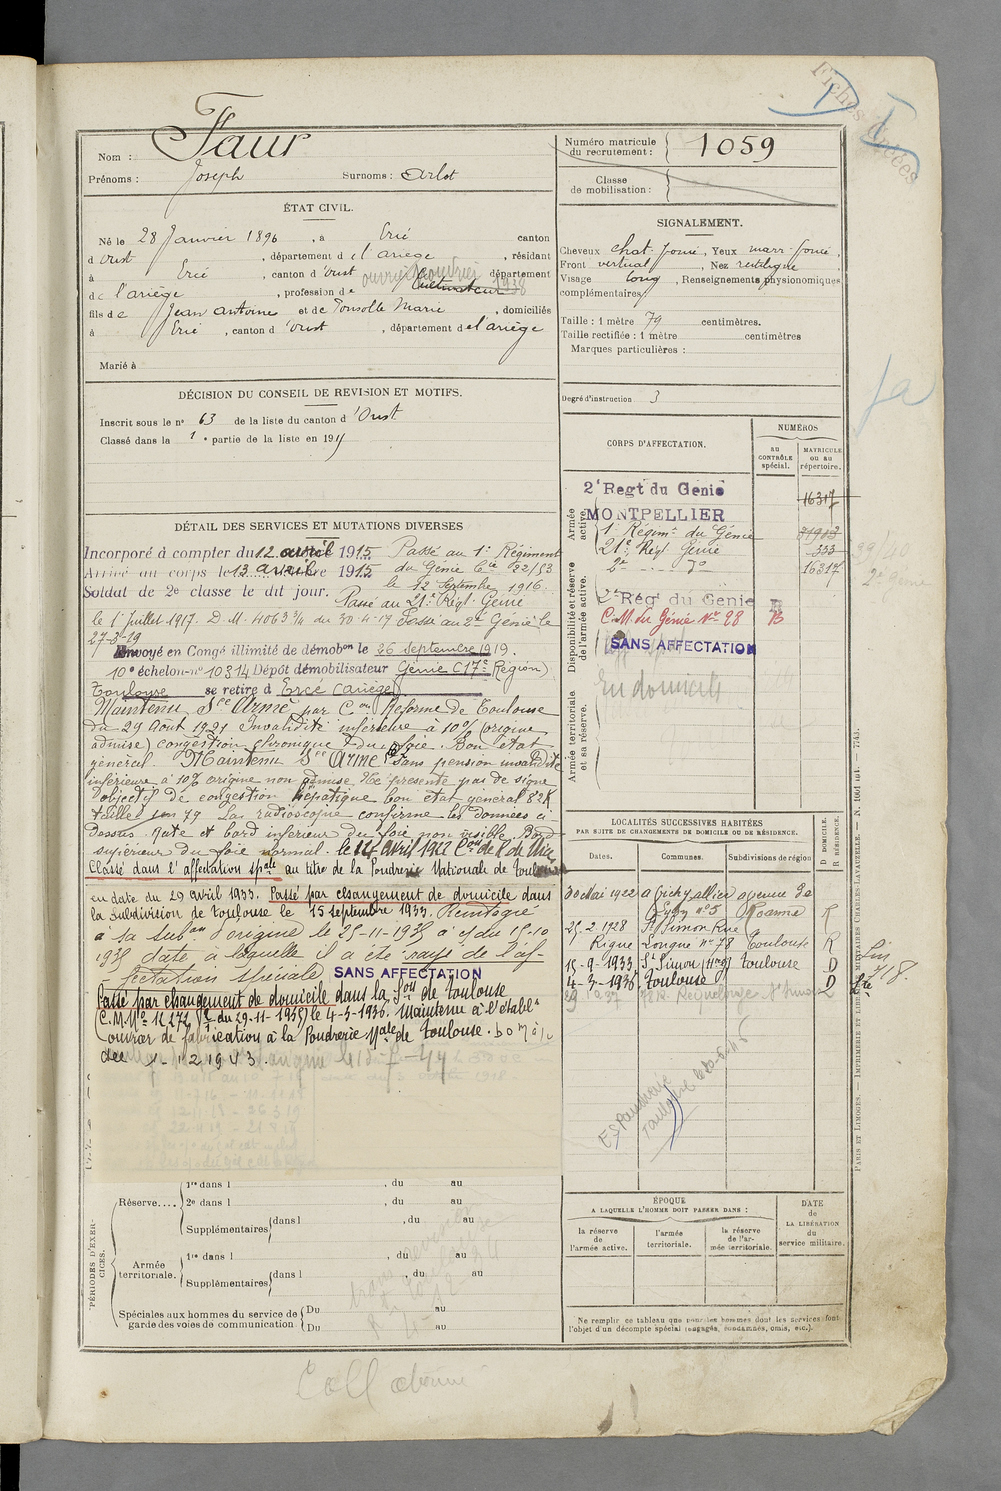 Fiches
Faur
Nom :
Prénoms : Joseph Surnoms : Arlot
Numéro matricule du recrutement : 1059
Classe de mobilisation :
ÉTAT CIVIL.
Né le 28 Janvier 1896, à Ercé canton
d'Oust, département de l'ariège, résidant
à Ercé, canton d'Oust département
de l'ariège, profession de Cultivateur 1938
fils de Jean Antoine et de Marie, domiciliés
à Ercé, canton d'Oust, département de l'ariège
Marié à
SIGNALEMENT.
Cheveux chat. foncé, Yeux marr. foncé,
Front vertical, Nez rectiligne,
Visage long, Renseignements physionomiques
complémentaires
Taille : 1 mètre 79 centimètres.
Taille rectifiée : 1 mètre centimètres
Marques particulières :
Degré d'instruction 3
DÉCISION DU CONSEIL DE REVISION ET MOTIFS.
Inscrit sous le n° 63 de la liste du canton d'Oust
Classé dans la 1e partie de la liste en 1915
CORPS D'AFFECTATION.
NUMÉROS
au CONTRÔLE spécial.
MATRICULE ou au répertoire.
Armée active.
2e Regt du Genie 16317
MONTPELLIER
1er Régimt du Génie
21e Régt Genie 333
2e - do 16317
Disponibilité et réserve de l'armée active.
2e Régt du Genie
C.M. du Génie No 28
SANS AFFECTATION
Armée territoriale et sa réserve.
DÉTAIL DES SERVICES ET MUTATIONS DIVERSES
Incorporé à compter du 12 avril 1915 Passé au 1er Régiment
Arrivé au corps le 13 avril 1915 du Génie Cie 22/53
Soldat de 2e classe le dit jour. le 22 Septembre 1916.
Passé au 21e Régt Genie
le 1er Juillet 1917. D.M. 4063 3/4 du 30-4-17 Passé au 2e Génie le
27-3-19
Envoyé en Congé illimité de démobon le 26 septembre 1919.
10e échelon n° 10314 Dépôt démobilisateur Génie (17e Région)
Toulouse se retire à Ercé (ariège)
Maintenu Sce Armé par Con Réforme de Toulouse
du 29 Août 1921 Invalidité inférieure à 10% (origine
admise) congestion chronique du foie. Bon état
général. Maintenu Sce Armé sans pension invalidité
inférieure à 10% origine non admise. Ne présente pas de signe
objectif de congestion hépatique bon état général 82K
taille 1m 79 La radioscopie confirme les données ci
dessus. rate et bord inférieur du foie non visible. Bord
supérieur du foie normal. le 14 Avril 1922 Con de R. de
Classé dans l'affectation spale au titre de la Poudrerie Nationale de Toulouse
en date du 29 avril 1933. Passé par changement de domicile dans
la subdivision de toulouse le 15 septembre 1933. Réintégré
à sa subon d'origine le 25-11-1935 à c/ du 15-10
1935 date à laquelle il a été rayé de l'af-
fectation spéciale SANS AFFECTATION
Passé par changement de domicile dans la Son de Toulouse
le 4-3-1936. Maintenu à l'établt
ouvrier de fabrication à la Poudrerie Nale de Toulouse.
1-12 1943.
LOCALITÉS SUCCESSIVES HABITÉES
PAR SUITE DE CHANGEMENTS DE DOMICILE OU DE RÉSIDENCE.
Dates. Communes. Subdivisions de région D DOMICILE. R RÉSIDENCE.
30 Mai 1922 a Vichy allier avenue de
n° 5 Roanne R
25-2-1928 St Simon Rue
n° 78 Toulouse R
15-9-1933 St Simon Toulouse D
4-3-1936 Toulouse D
PÉRIODES D'EXERCICES.
Réserve....
1re dans l , du au
2e dans l , du au
Supplémentaires dans l , du au
Armée territoriale.
1re dans l , du au
Supplémentaires dans l , du au
Spéciales aux hommes du service de garde des voies de communication
Du au
Du au
ÉPOQUE
A LAQUELLE L'HOMME DOIT PASSER DANS :
la réserve de l'armée active.
l'armée territoriale.
la réserve de l'armée territoriale.
DATE de LA LIBÉRATION du service militaire.
Ne remplir ce tableau que pour les hommes dont les services font
l'objet d'un décompte spécial (engagés, condamnés, omis, etc.).
PARIS ET LIMOGES. — IMPRIMERIE ET LIBRAIRIE MILITAIRES CHARLES-LAVAUZELLE.